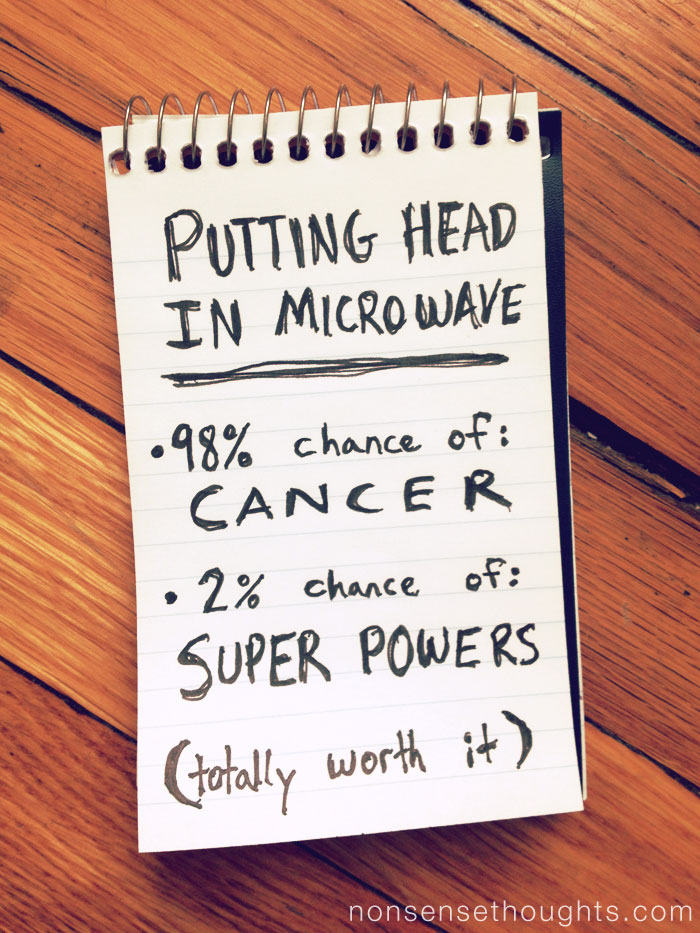 PUTTING HEAD
IN MICROWAVE
• 98% chance of:
CANCER
• 2% chance of:
SUPER POWERS
(totally worth it)
nonsensethoughts.com